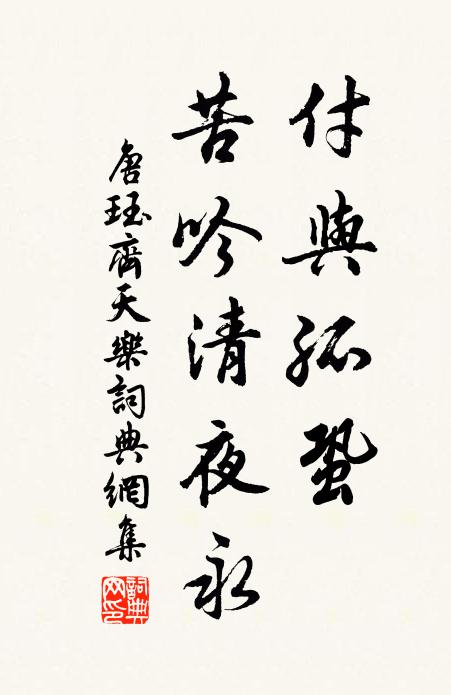 付與孤蛩
苦吟清夜永
唐珏齊天樂詞典網集
詞典網印